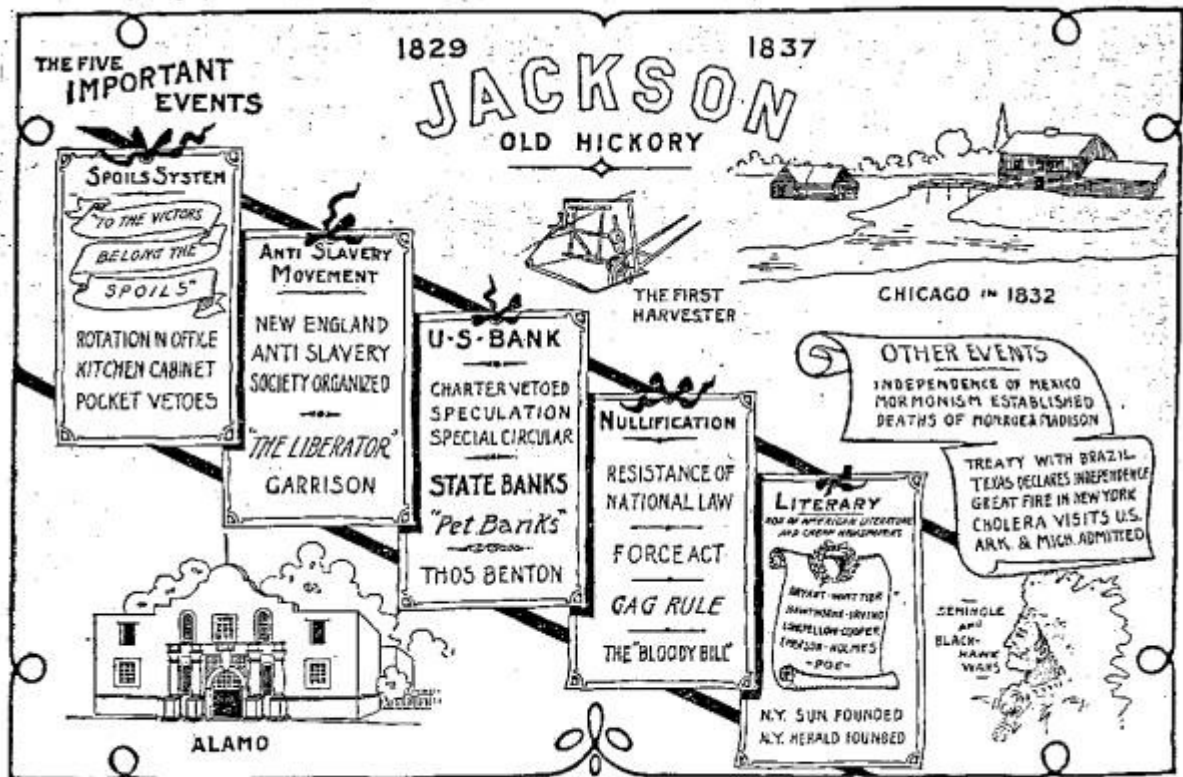 THE FIVE
IMPORTANT
EVENTS
1829
1837
JACKSON
OLD HICKORY
SPOILS SYSTEM
"TO THE VICTORS
BELONG THE
SPOILS"
ROTATION IN OFFICE
KITCHEN CABINET
POCKET VETOES
ANTI SLAVERY
MOVEMENT
NEW ENGLAND
ANTI SLAVERY
SOCIETY ORGANIZED
"THE LIBERATOR"
GARRISON
U-S-BANK
CHARTER VETOED
SPECULATION
SPECIAL CIRCULAR
STATE BANKS
"Pet Banks"
THOS BENTON
NULLIFICATION
RESISTANCE OF
NATIONAL LAW
FORCE ACT
GAG RULE
THE "BLOODY BILL"
LITERARY
OF AMERICAN LITERATURE
AND CHEAP NEWSPAPERS
BRYANT-WHITTIER
HAWTHORNE-IRVING
LONGFELLOW-COOPER
EMERSON-HOLMES
-POE-
N.Y. SUN FOUNDED
N.Y. HERALD FOUNDED
THE FIRST
HARVESTER
CHICAGO IN 1832
OTHER EVENTS
INDEPENDENCE OF MEXICO
MORMONISM ESTABLISHED
DEATHS OF MONROE & MADISON
TREATY WITH BRAZIL
TEXAS DECLARES INDEPENDENCE
GREAT FIRE IN NEW YORK
CHOLERA VISITS U.S.
ARK. & MICH. ADMITTED
SEMINOLE
AND
BLACK-
HAWK
WARS
ALAMO